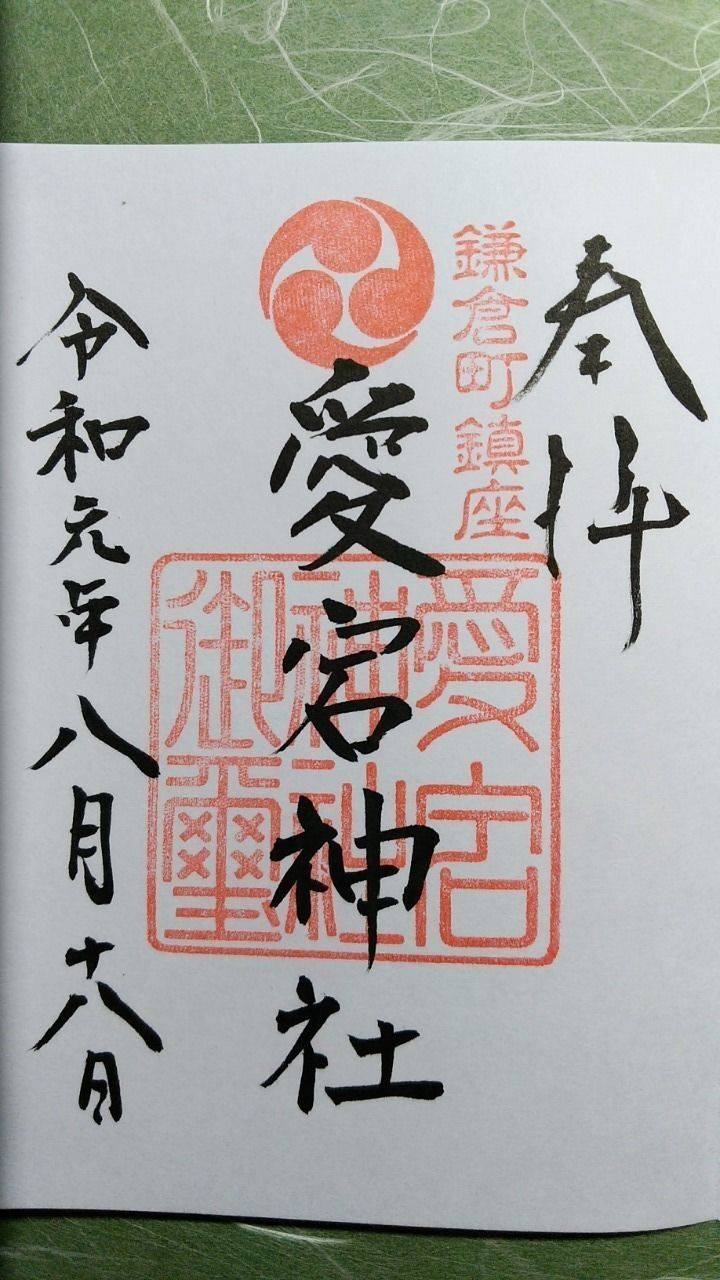 奉拝
鎌倉町鎮座
愛宕神社
愛宕
神社
御璽
令和元年八月十八日